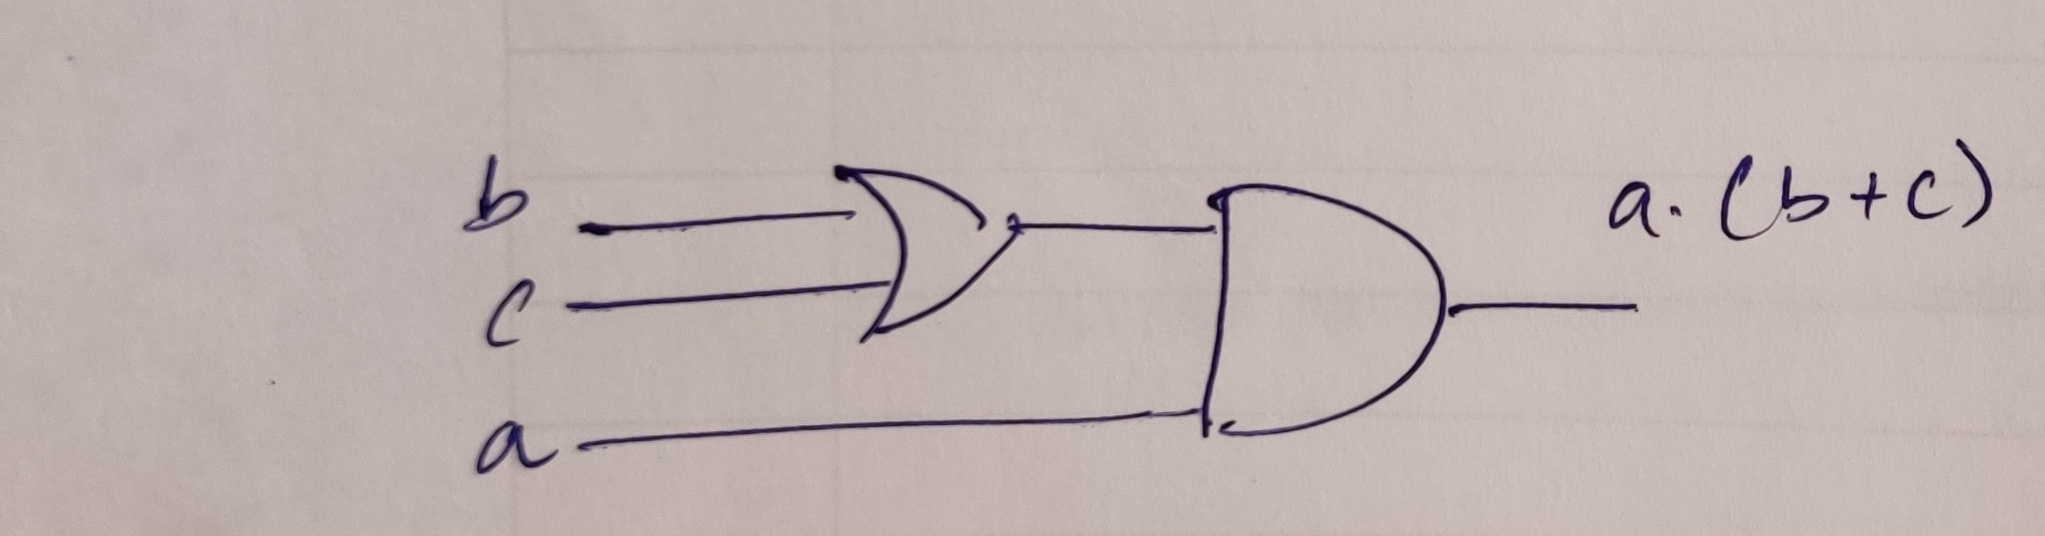 b
c
a
a. (b+c)